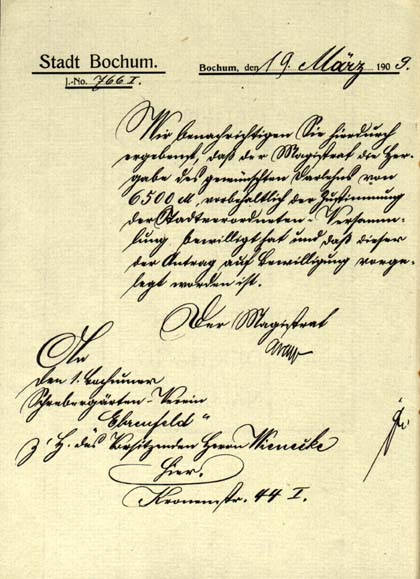 Stadt Bochum.
J.-No. 766 I.
Bochum, den 19. März 1909.
Wir benachrichtigen Sie hierdurch
ergebenst, daß der Magistrat die Her-
gabe des gewünschten Darlehns von
6500 M, vorbehaltlich der Zustimmung
der Stadtverordneten-Versamm-
lung bewilligt hat und daß dieser
der Antrag auf Bewilligung vorge-
legt worden ist.
Der Magistrat
An
den 1. Bochumer
Schrebergärten-Verein
"Ehrenfeld"
z. H. des Vorsitzenden Herrn Wienecke
Hier.
Kronenstr. 44 I.